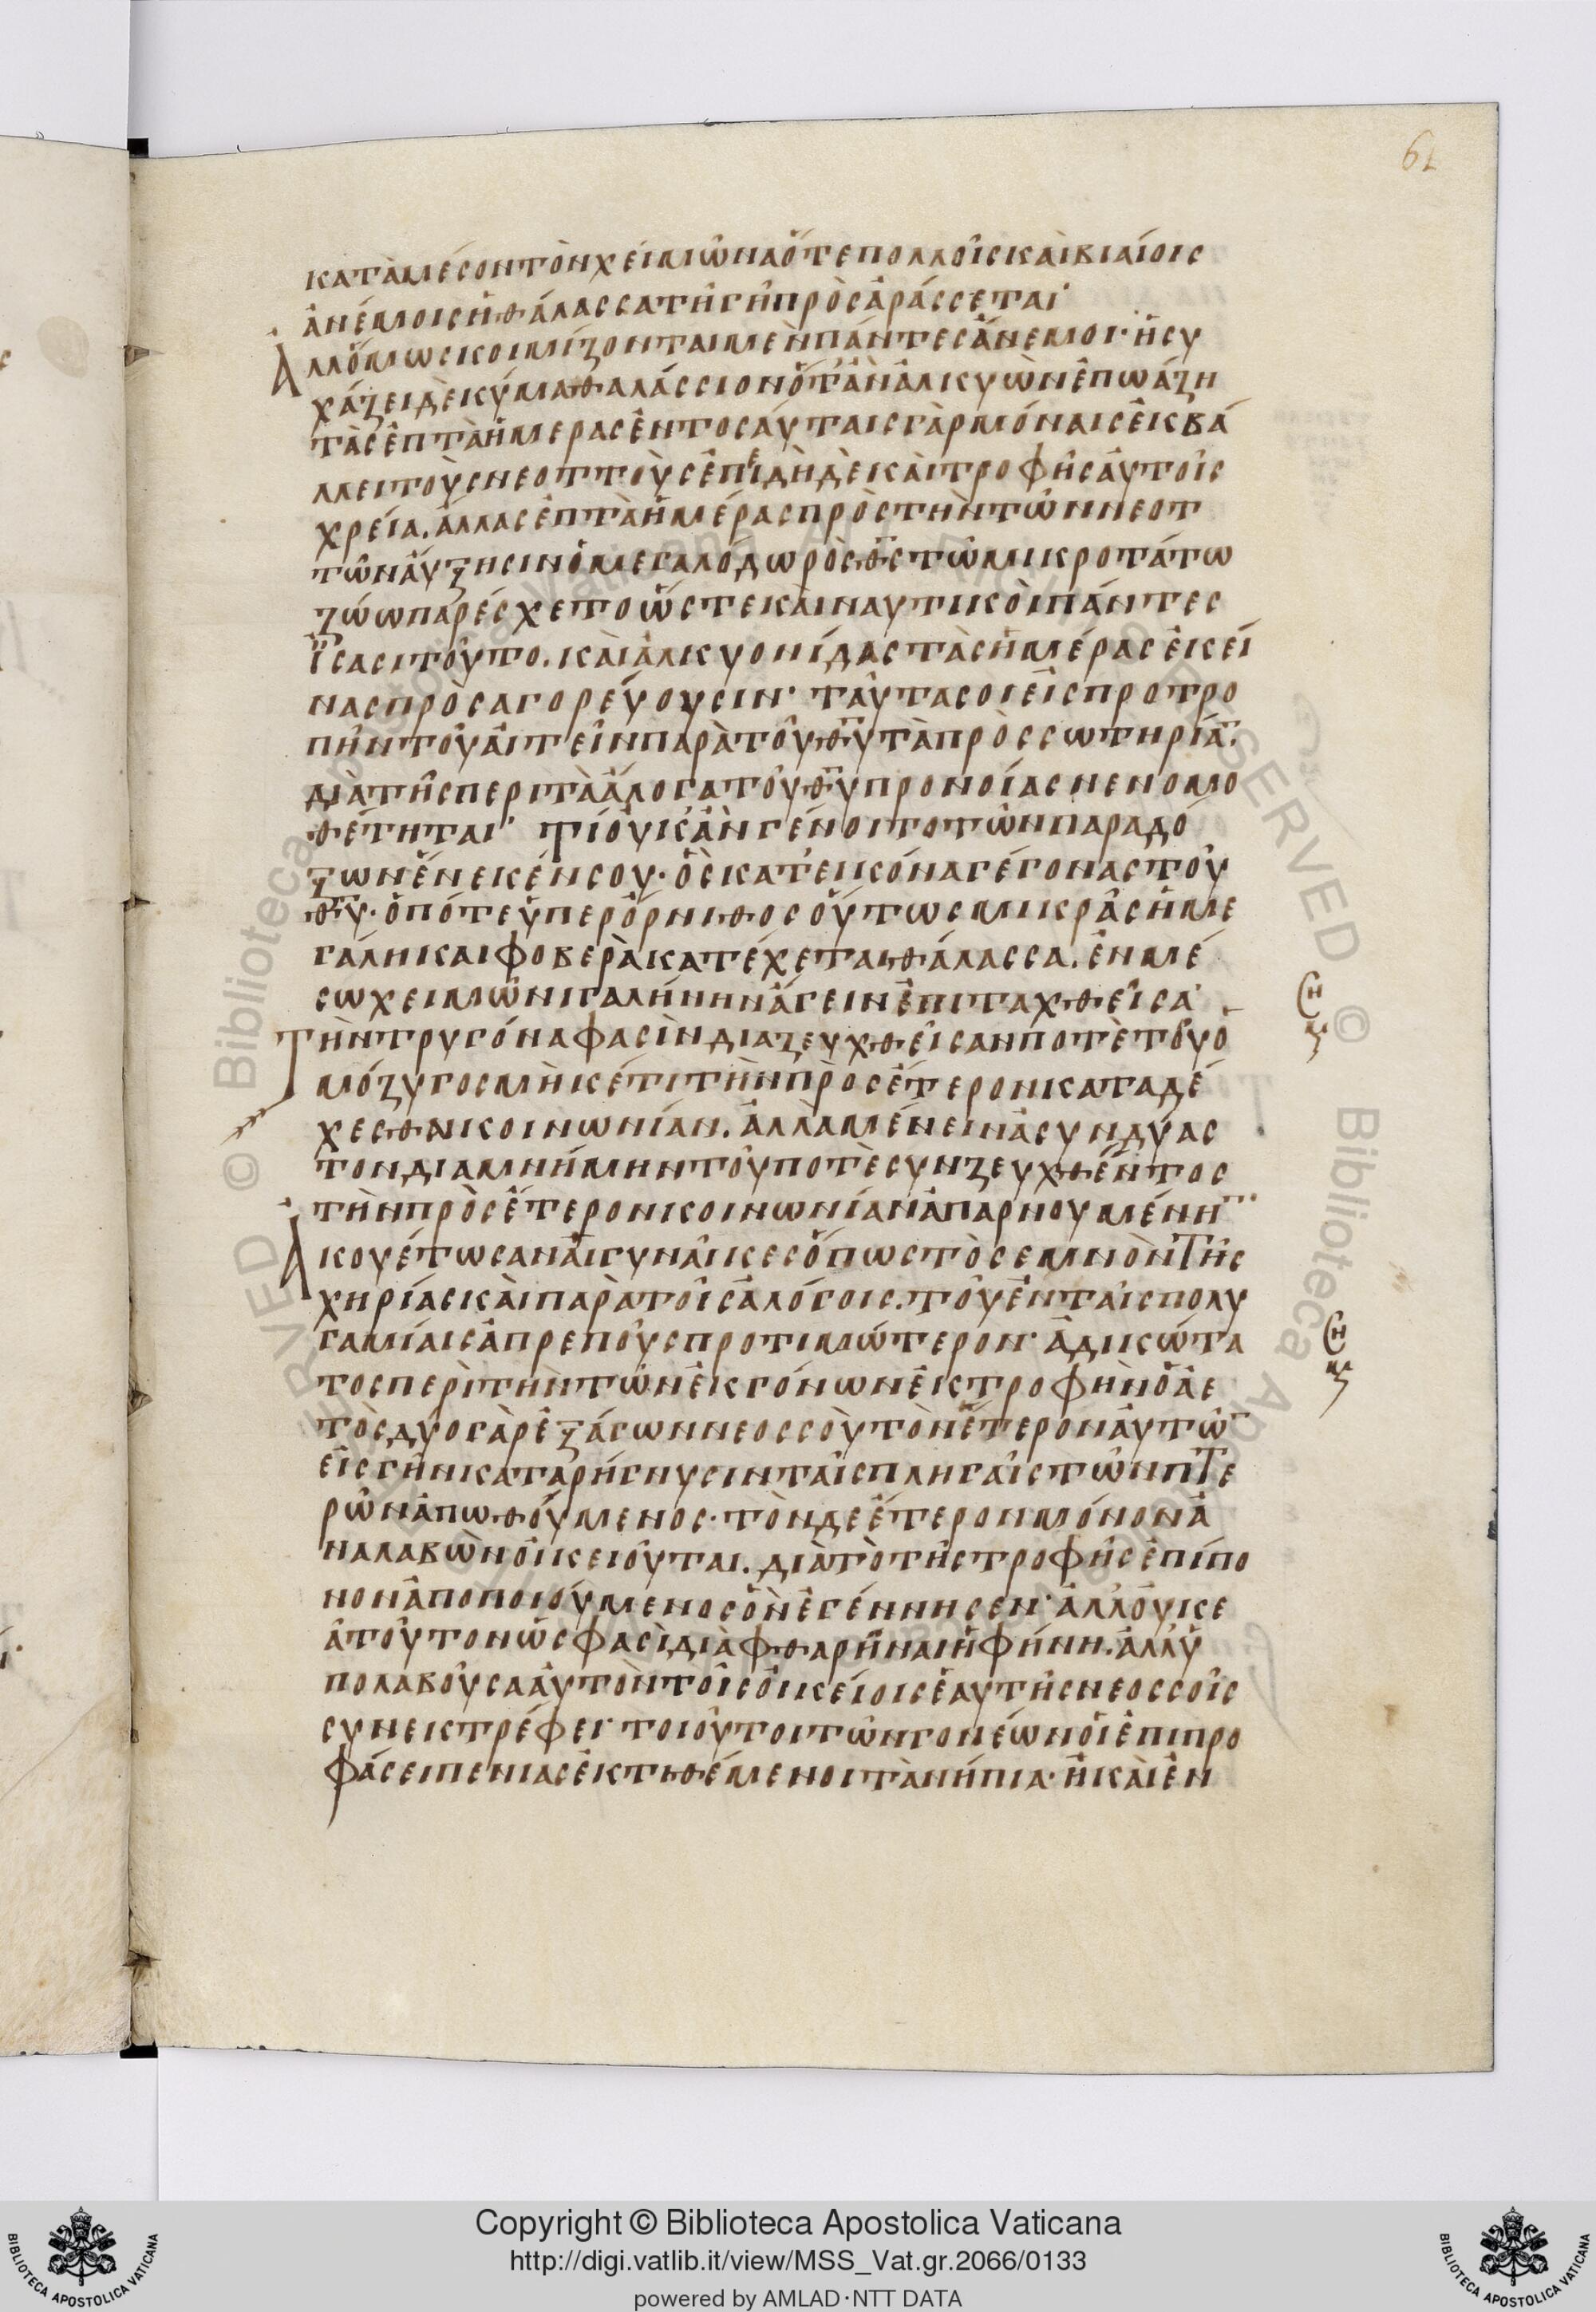 61
κατὰ μέσον τὸν χειμῶνα ὅτε πολλοῖς καὶ βιαίοις
ἀνέμοις ἡ θάλασσα τῇ γῇ πρὸς ἀράσσεται·
Ἀλλ ὅμως κοιμίζονται μὲν πάντες ἄνεμοι· ἡσυ
χάζει δὲ κύμα θαλάσσιον ὅτ ἂν ἀλκυὼν ἐπωάζη
τὰς ἑπτὰ ἡμερας ἐντος αύταις γὰρ μόναις ἐκβά
λλει τοὺς νεοττοὺς ἐπειδὴ δὲ καὶ τροφῆς αὐτοῖς
χρεία. ἄλλας ἑπτὰ ἡμέρας πρὸς τὴν τῶν νεοτ
τῶν ἄυξησιν ὁ μεγαλόδωρὸς θς τῶ μικροτάτω
ζώω παρέσχετο ὥστε καὶ ναυτικὸι πάντες
ἵσασι τοῦτο. καὶ ἀλκυονίδας τὰς ἡμέρας ἐκεί
νας πρὸσαγορεύουσιν· ταῦτα σοι εἰς προτρο
πὴν τοῦ ἀιτεῖν παρὰ τοῦ θυ τὰ πρὸς σωτηρίαν.
διὰ τῆς περι τὰ ἄλογα τοῦ θυ προνοίας νενομο
θέτηται· τί οὐκ ἂν γένοιτο τῶν παραδό
ξων ἕνεκέν σου· ὃς κατ εικόνα γέγονας τοῦ
θυ· ὁπότε ὑπερ ὄρνιθος ὅυτως μικρᾶς ἡ με
γάλη και φοβερὰ κατέχεται θάλασσα. ἐν μέ
σω χειμῶνι γαλήνην ἄγειν ἐπιταχθεῖσα·
Τὴν τρυγόνα φασὶν διαζευχθεῖσαν ποτὲ τοῦ ὁ
μόζυγος μὴκέτι τὴν πρὸς ἕτερον καταδέ
χεσθαι κοινωνίαν. ἀλλα μένειν ἀσυνδύας
τον δια μνήμην τοῦ ποτὲ συνζευχθέντος
τὴν πρὸς ἕτερον κοινωνίαν ἀπαρνουμένην·
Ἀκουέτωσαν ἁι γυνᾶικες ὅπως τὸ σεμνὸν τῆς
χηρίας καὶ παρὰ τοῖς ἀλόγοις. τοῦ ἐν ταῖς πολυ
γαμίαις ἀπρεποῦς προτιμώτερον· ἀδικώτα
τος περὶ τὴν τῶν ἐκγόνων ἐκτροφὴν ὁ ἀε
τὸς δυο γὰρ ἐξάγων νεοσσοὺ τὸν ἕτερον ἀυτῶν
εἰς γῆν καταρήγνυσιν ταῖς πληγαῖς τῶν πτε
ρῶν ἀπωθούμενος· τὸν δε ἕτερον μόνον ἀ
ναλαβὼν ὀικειοῦται. διὰ τὸ τῆς τροφῆς ἐπίπο
νον ἀποποιούμενος ὃν ἐγέννησεν· ἀλλ οὐκ ε
ᾶ τοῦτον ὥς φασὶ διὰφθαρῆναι ἡ φήνη. ἀλλ ὑ
πολαβοῦσα ἀυτὸν τοῖς ὀικείοις ἑαυτῆς νεοσσοῖς
συνεκτρέφει· τοιοῦτοι τῶν γονέων ὁι ἐπι προ
φάσει πενιας ἐκτιθέμενοι τὰ νήπια· ἢ καὶ ἐν
Copyright © Biblioteca Apostolica Vaticana
http://digi.vatlib.it/view/MSS_Vat.gr.2066/0133
powered by AMLAD·NTT DATA
BIBLIOTECA APOSTOLICA VATICANA
BIBLIOTECA APOSTOLICA VATICANA